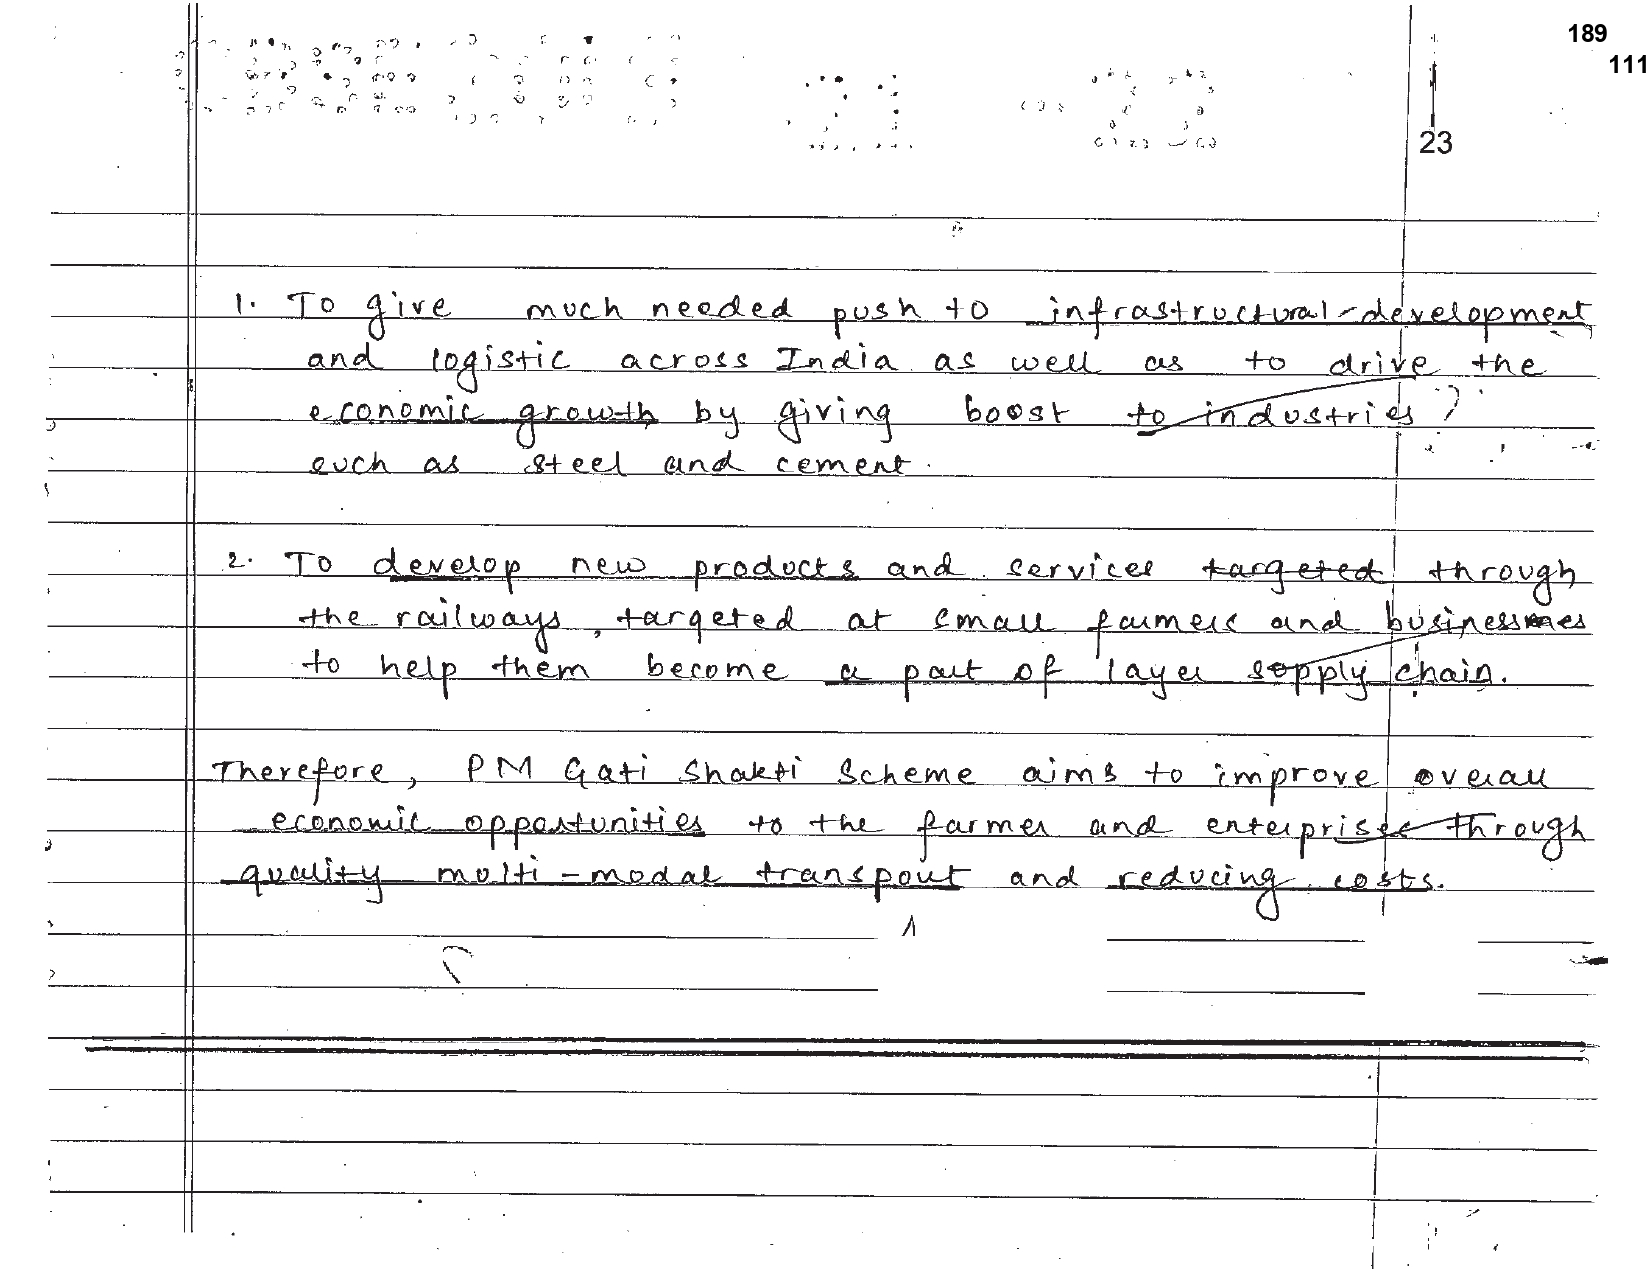 189
111
23
1. To give much needed push to infrastructural-development
and logistic across India as well as to drive the
economic growth by giving boost to industries
such as steel and cement.
2. To develop new products and services targeted through
the railways, targeted at small farmers and businesses
to help them become a part of layer supply chain.
Therefore, PM Gati Shakti Scheme aims to improve overall
economic opportunities to the farmer and enterprises through
quality multi-modal transport and reducing costs.